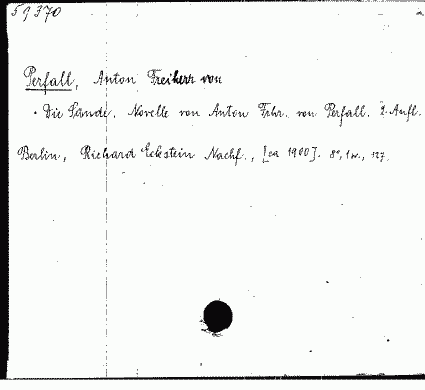 59370
Perfall, Anton Freiherr von
Die Sünde. Novelle von Anton Frhr. von Perfall. 2. Aufl.
Berlin, Richard Eckstein Nachf., [ca 1900]. 8°, 1 w., 127.